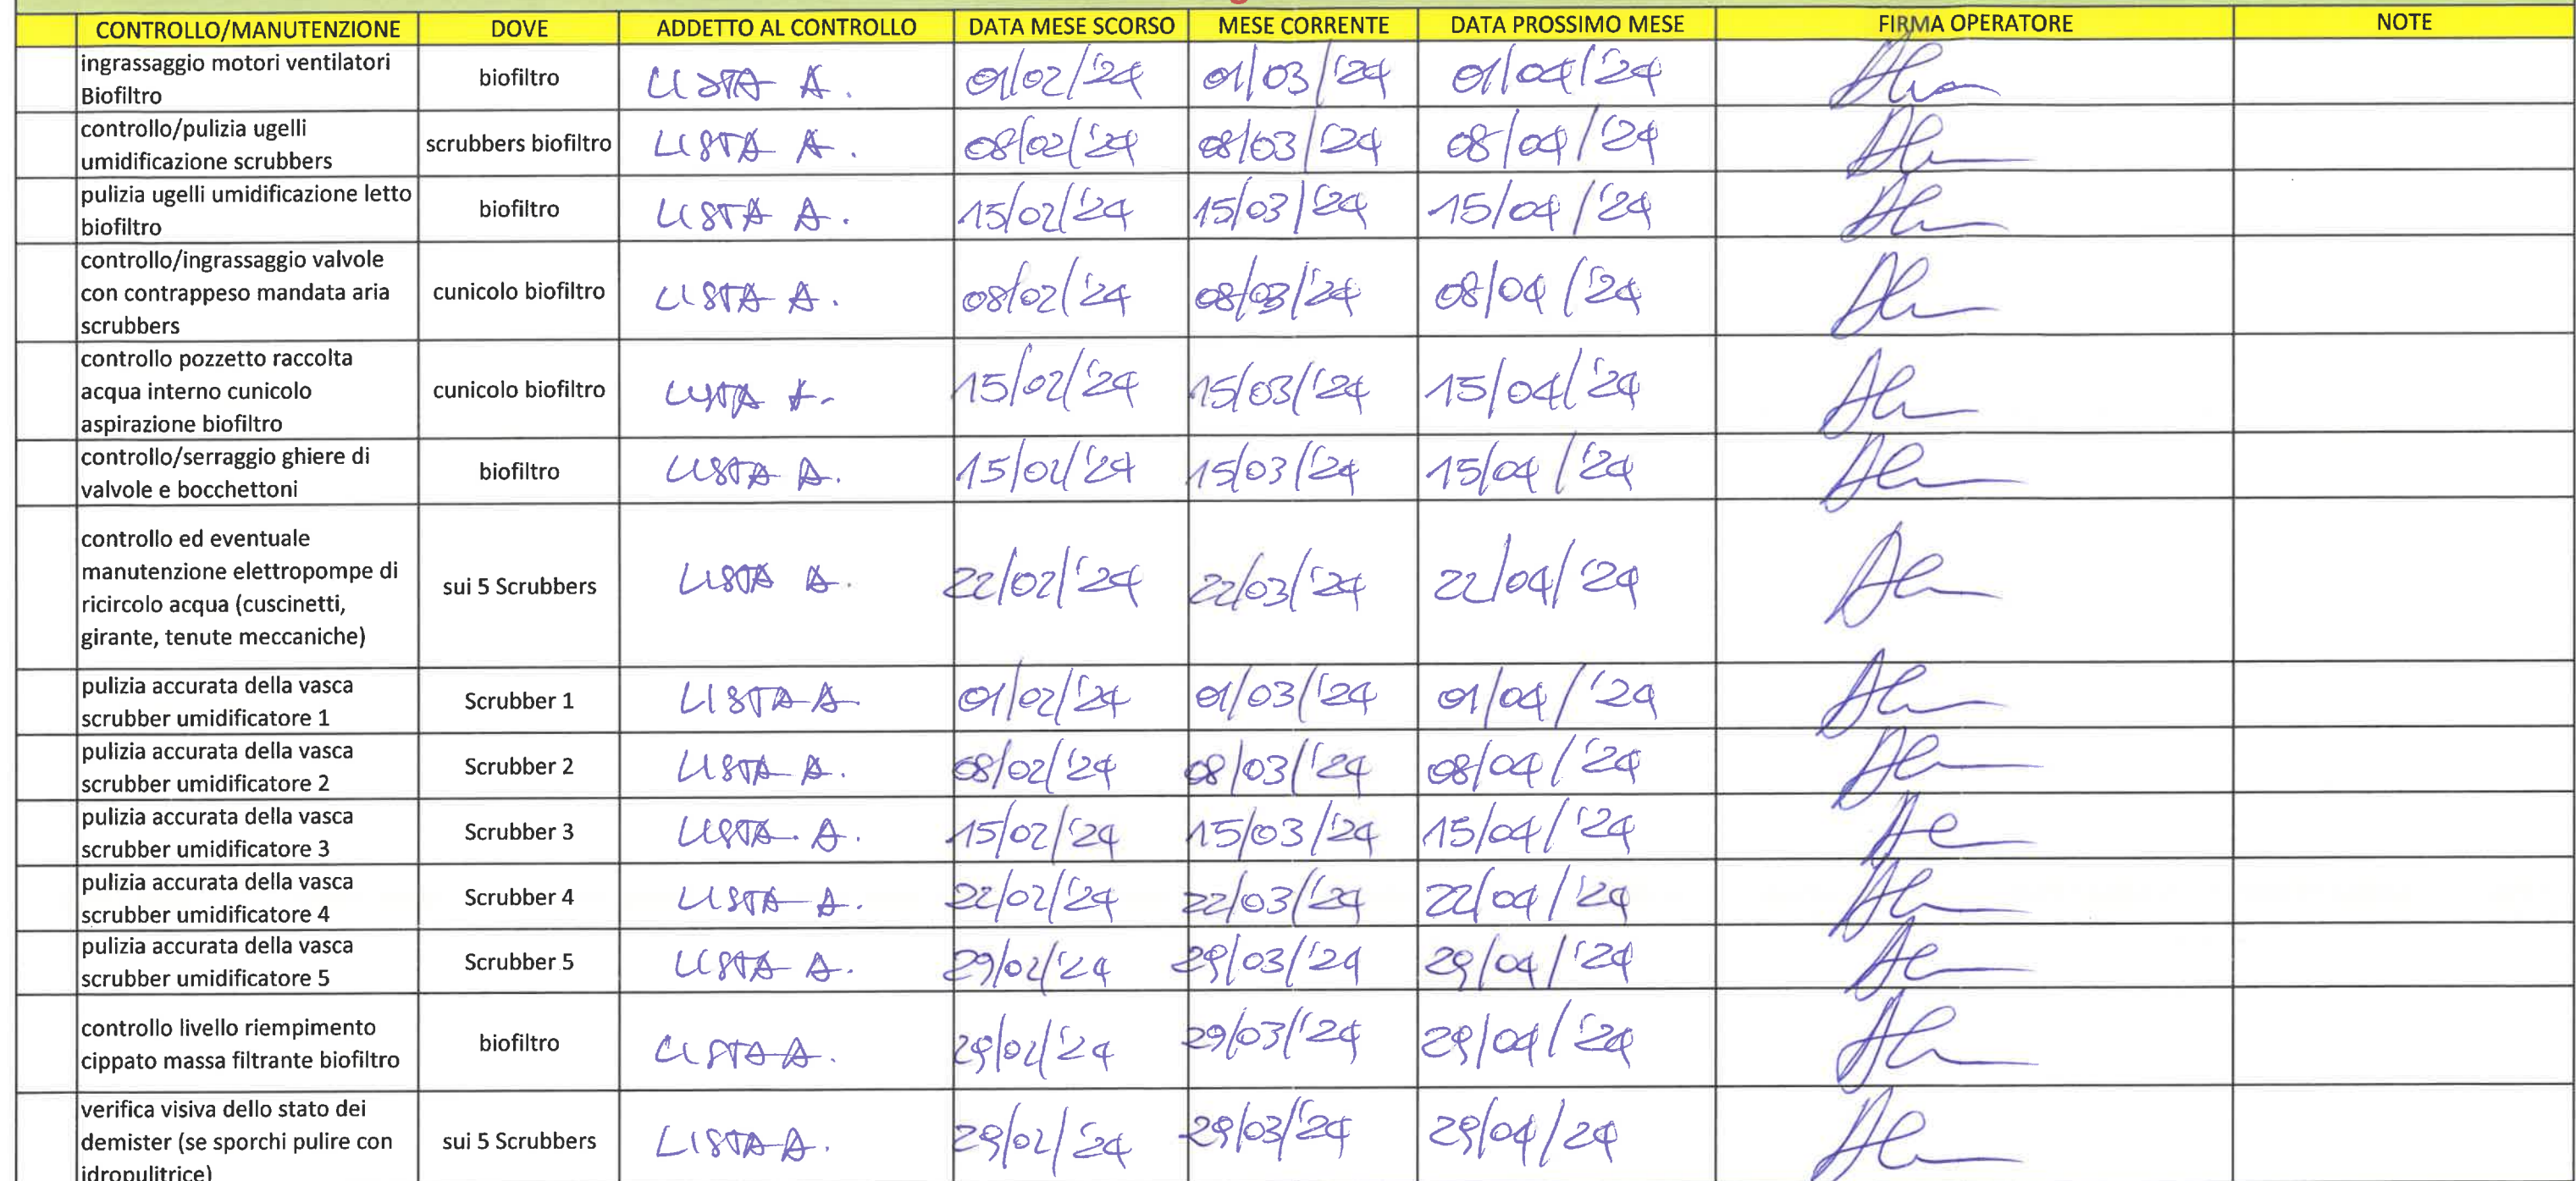 CONTROLLO/MANUTENZIONE DOVE ADDETTO AL CONTROLLO DATA MESE SCORSO MESE CORRENTE DATA PROSSIMO MESE FIRMA OPERATORE NOTE
ingrassaggio motori ventilatori
Biofiltro
biofiltro LISTA A. 01/02/'24 01/03/'24 01/04/'24
controllo/pulizia ugelli
umidificazione scrubbers
scrubbers biofiltro LISTA A. 08/02/'24 08/03/'24 08/04/'24
pulizia ugelli umidificazione letto
biofiltro
biofiltro LISTA A. 15/02/'24 15/03/'24 15/04/'24
controllo/ingrassaggio valvole
con contrappeso mandata aria
scrubbers
cunicolo biofiltro LISTA A. 08/02/'24 08/03/'24 08/04/'24
controllo pozzetto raccolta
acqua interno cunicolo
aspirazione biofiltro
cunicolo biofiltro LISTA A. 15/02/'24 15/03/'24 15/04/'24
controllo/serraggio ghiere di
valvole e bocchettoni
biofiltro LISTA A. 15/02/'24 15/03/'24 15/04/'24
controllo ed eventuale
manutenzione elettropompe di
ricircolo acqua (cuscinetti,
girante, tenute meccaniche)
sui 5 Scrubbers LISTA A. 22/02/'24 22/03/'24 22/04/'24
pulizia accurata della vasca
scrubber umidificatore 1
Scrubber 1 LISTA A 01/02/'24 01/03/'24 01/04/'24
pulizia accurata della vasca
scrubber umidificatore 2
Scrubber 2 LISTA A. 08/02/'24 08/03/'24 08/04/'24
pulizia accurata della vasca
scrubber umidificatore 3
Scrubber 3 LISTA. A. 15/02/'24 15/03/'24 15/04/'24
pulizia accurata della vasca
scrubber umidificatore 4
Scrubber 4 LISTA A. 22/02/'24 22/03/'24 22/04/'24
pulizia accurata della vasca
scrubber umidificatore 5
Scrubber 5 LISTA A. 29/02/'24 29/03/'24 29/04/'24
controllo livello riempimento
cippato massa filtrante biofiltro
biofiltro LISTA A. 29/02/'24 29/03/'24 29/04/'24
verifica visiva dello stato dei
demister (se sporchi pulire con
idropulitrice)
sui 5 Scrubbers LISTA A. 29/02/'24 29/03/'24 29/04/24